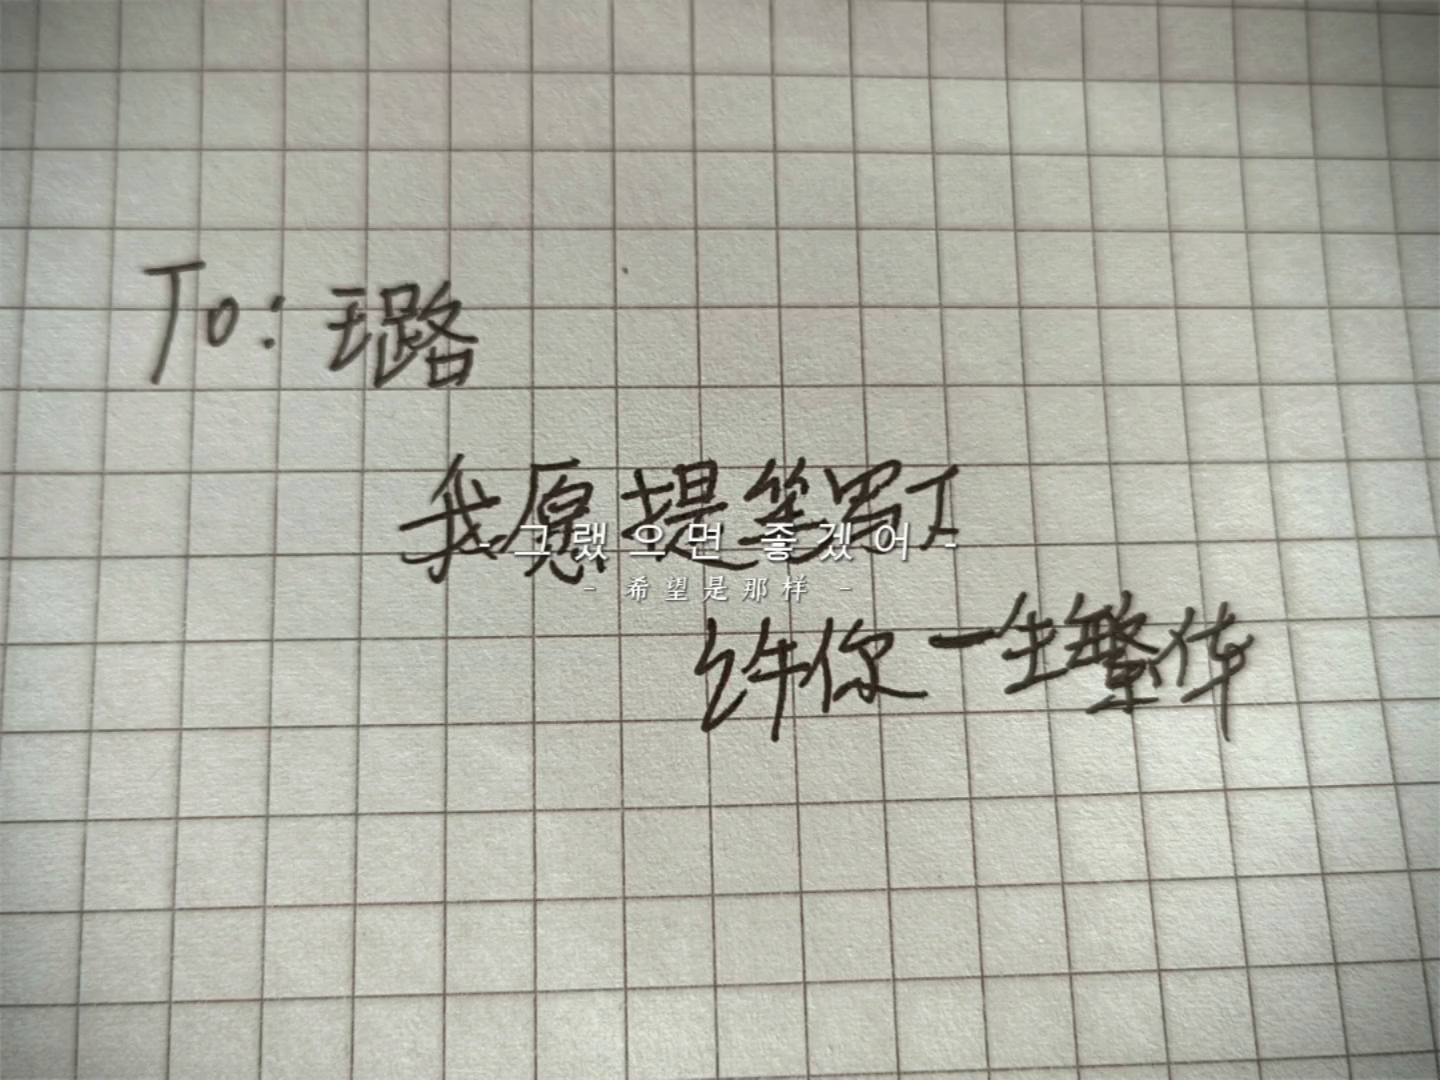 To: 璐
我愿提笔写下
- 그랬으면 좋겠어 -
- 希望是那样 -
许你一生繁华